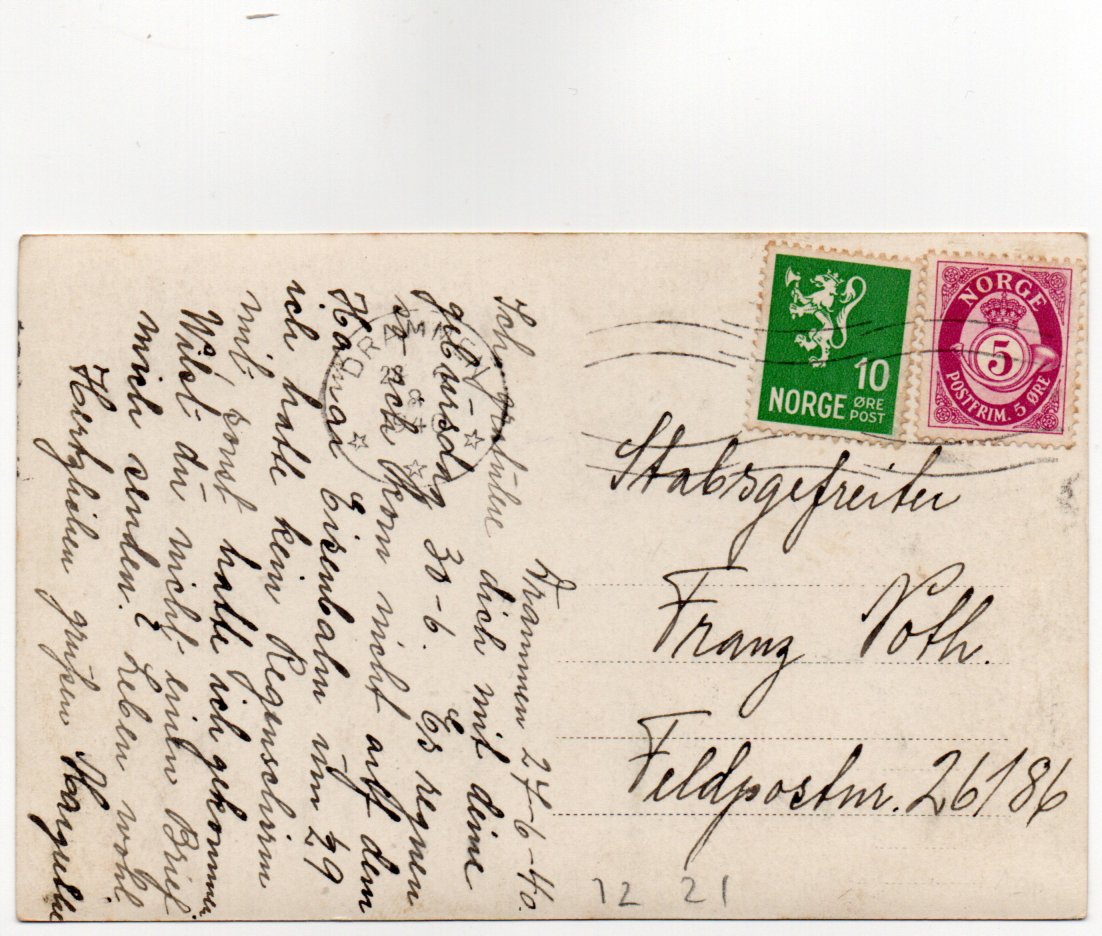 Drammen 27-6-40.
Ich gratuliere dich mit deine
gebursdag 30-6. Es regnen
so ich kom nicht auf dem
Haman Eisenbahn um 29
ich hatte kein Regenschirm
mit, sonst hatte ich gekommen.
Wilst du nicht einen Brief
mich senden? Leben wohl
Herzlichen grüßen
DRAMMEN
28
NORGE
10
ØRE
POST
NORGE
5
POSTFRIM. 5 ØRE
Stabsgefreiter
Franz Voth.
Feldpostnr. 26186
12 21